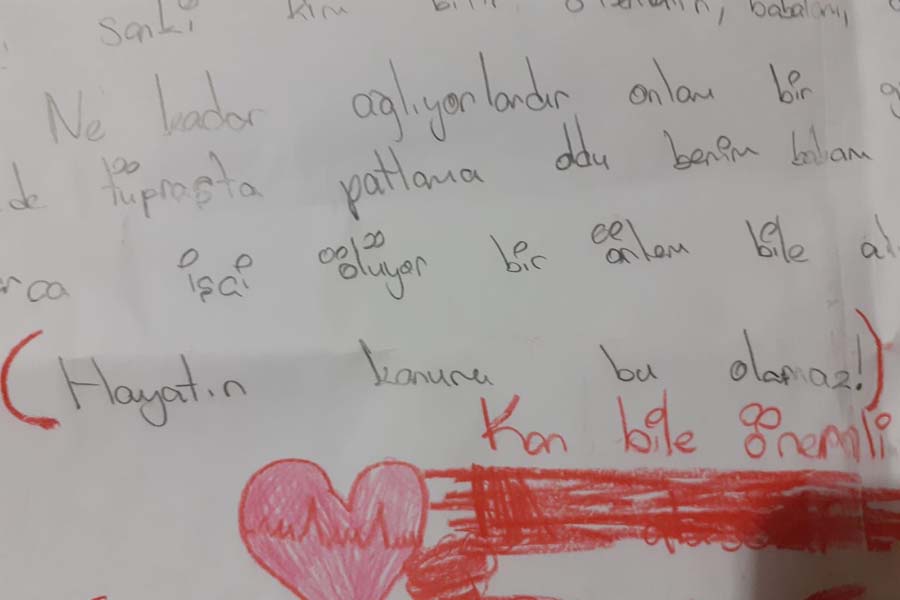 sanki kim bilir babaları,
Ne kadar ağlıyorlardır onları bir
de tüpraşta patlama oldu benim babam
işçi ölüyor bir önlem bile
(Hayatın kanunu bu olamaz!)
Kan bile önemli